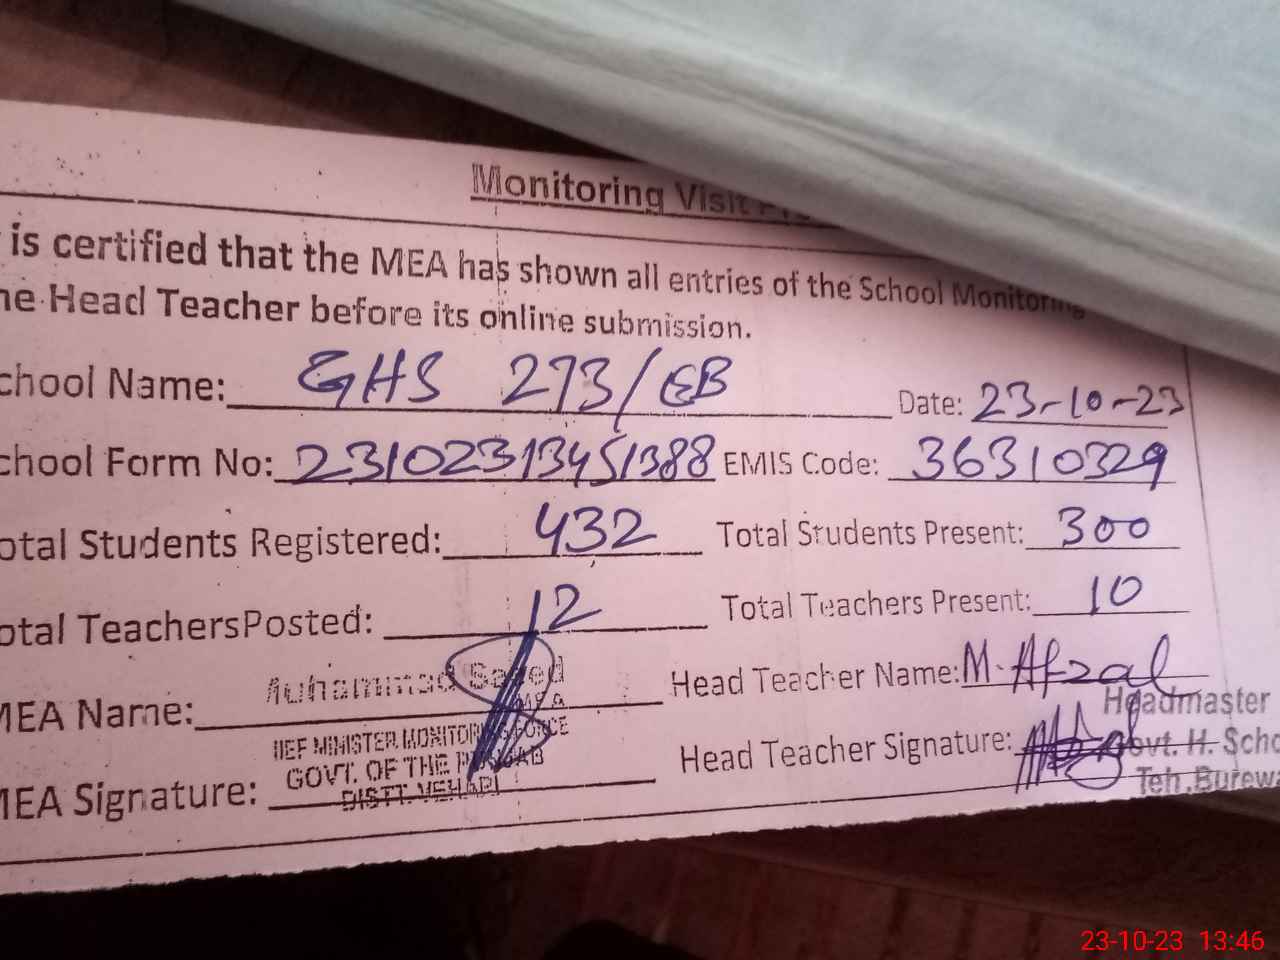 Monitoring Visit
is certified that the MEA has shown all entries of the School Monitoring
he Head Teacher before its online submission.
chool Name: GHS 273/EB Date: 23-10-23
chool Form No: 23102313451388 EMIS Code: 36310329
otal Students Registered: 432 Total Students Present: 300
otal TeachersPosted: 12 Total Teachers Present: 10
MEA Name: Muhammad Saeed Head Teacher Name: M. Afzal
MEA
Headmaster
IEF MINISTER MONITORING FORCE
MEA Signature: GOVT. OF THE PUNJAB Head Teacher Signature: Govt. H. Scho
DISTT. VEHARI Teh. Burewa
23-10-23 13:46